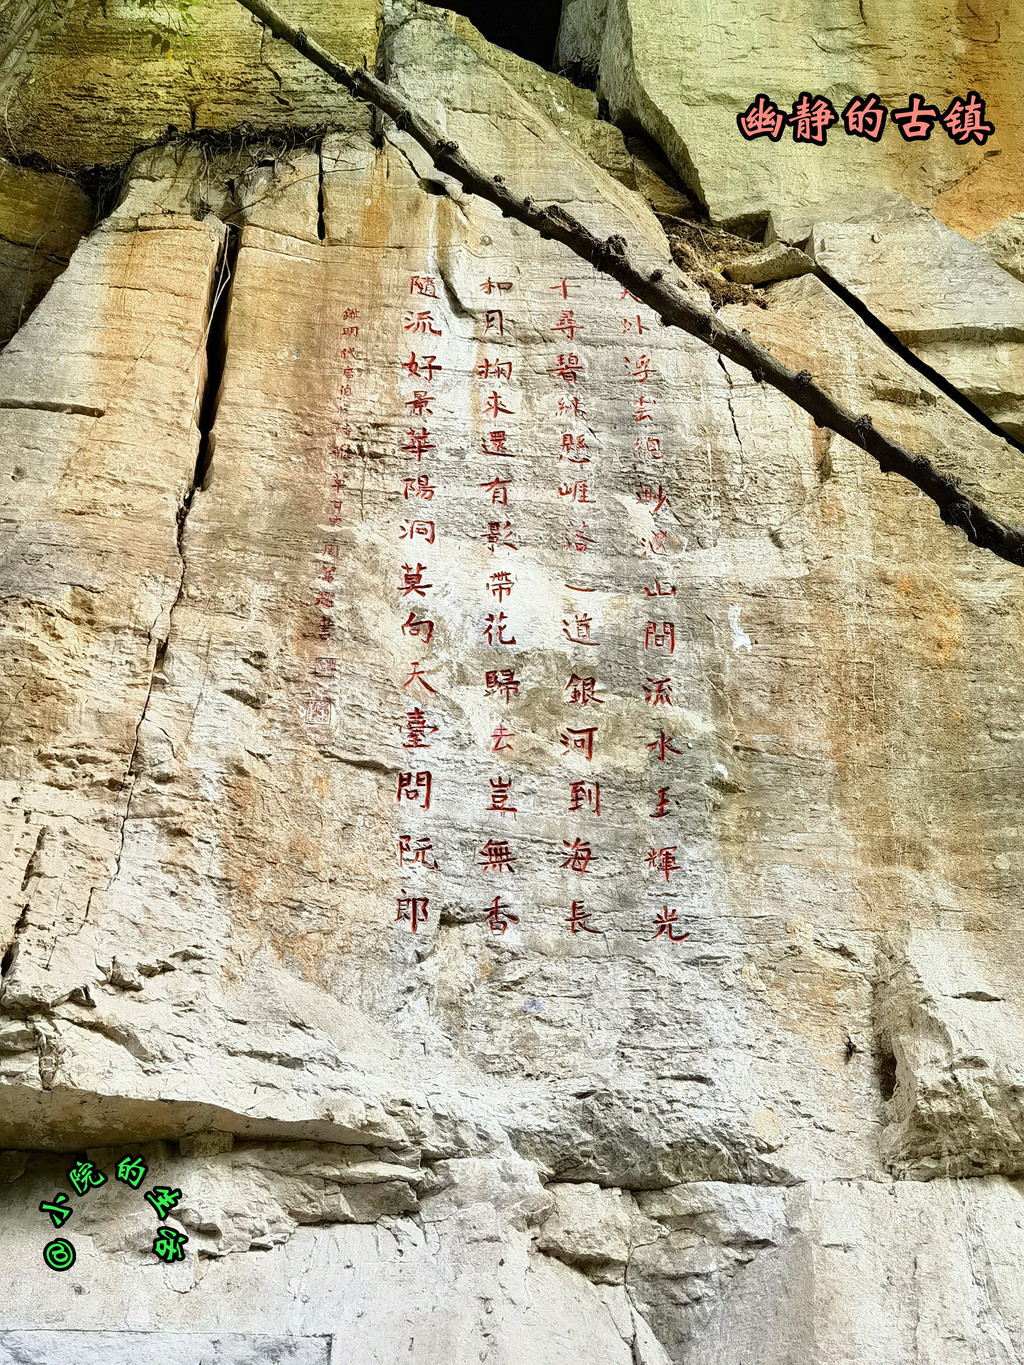 幽静的古镇
外浮雲總渺山間流水玉輝光
千尋碧練懸崖落一道銀河到海長
和月掬來還有影帶花歸去豈無香
隨流好景華陽洞莫向天臺問阮郎
錄明代唐伯 周 書
@小院的生活